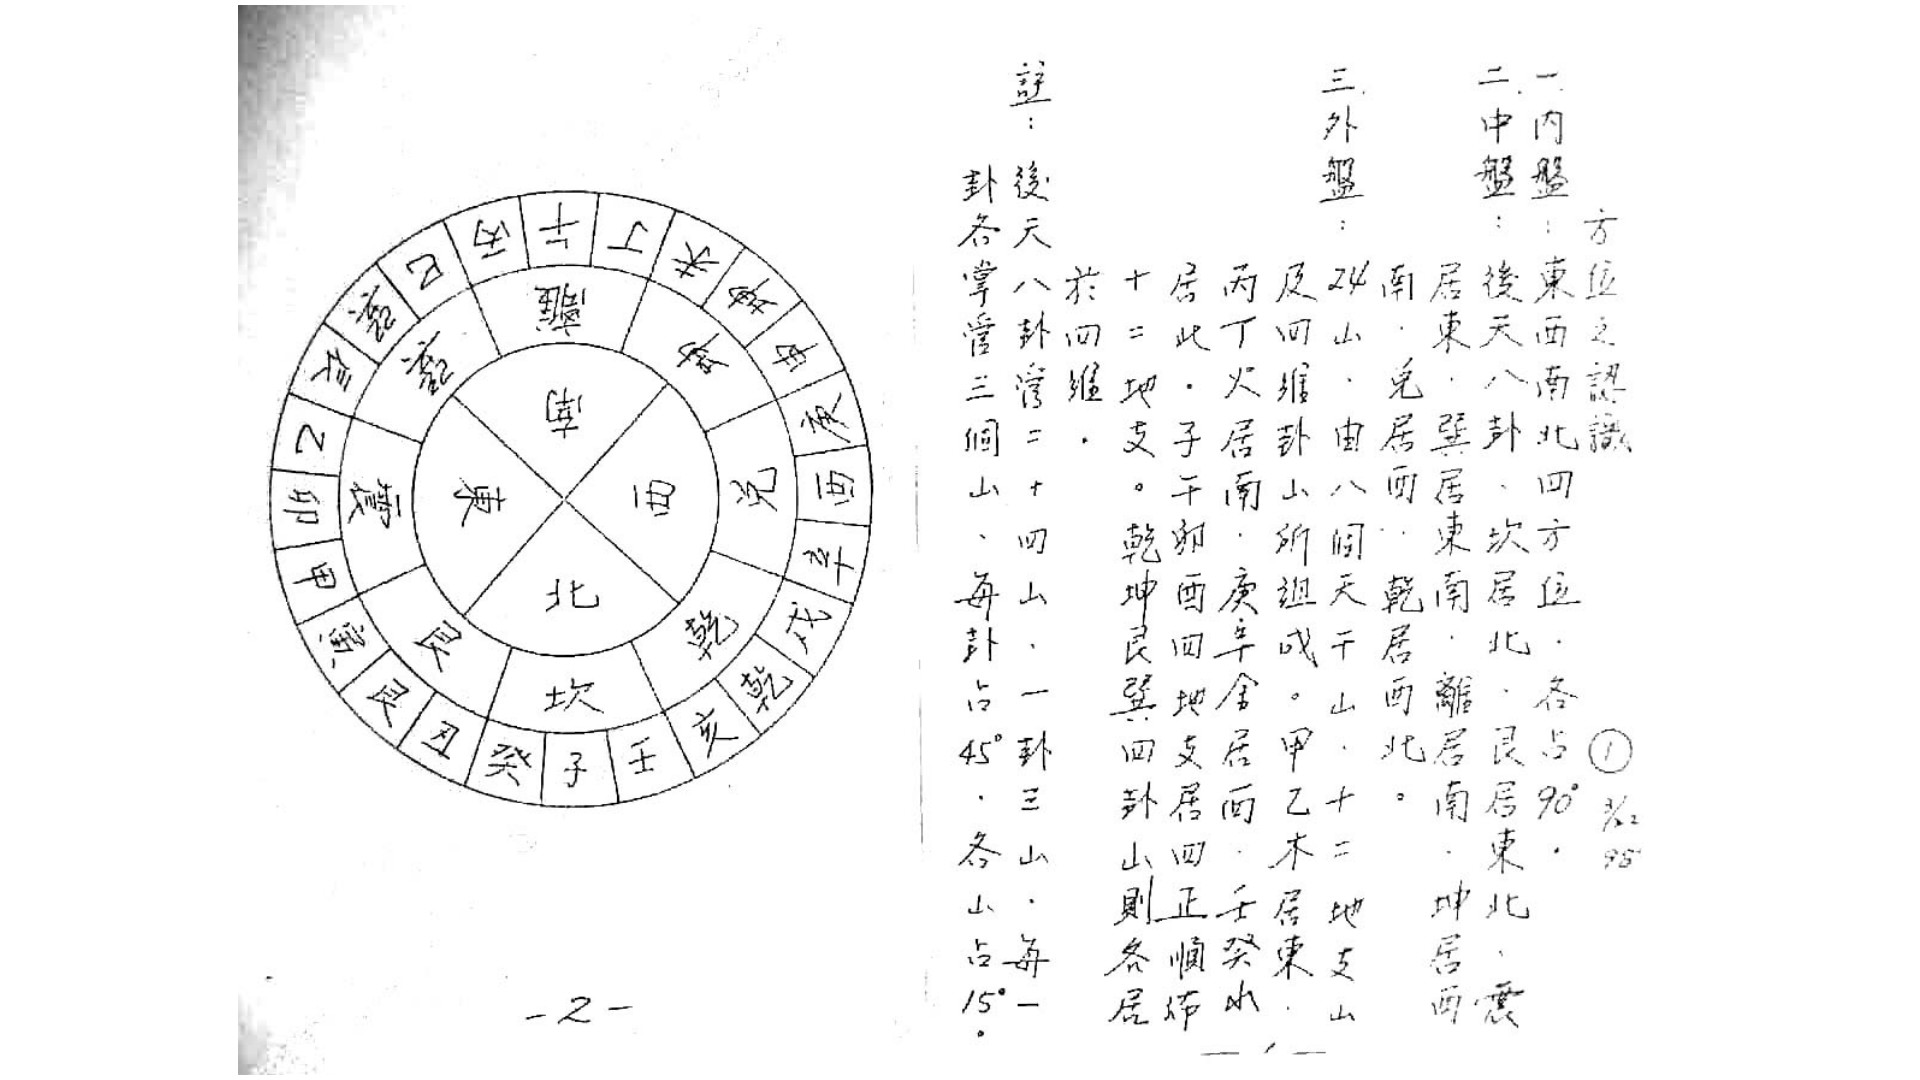 方位之認識 ①
一.内盤:東西南北四方位.各占90°.
二.中盤:後天八卦、坎居北.艮居東北.震
居東.巽居東南.離居南.坤居西
南.兌居西..乾居西北。
三.外盤:24山.由八個天干山.十二地支山
及四維卦山所組成。甲乙木居東.
丙丁火居南.庚辛金居西.壬癸水
居此.子午卯酉四地支居四正順佈
十二地支。乾坤艮巽四卦山則各居
於四維.
註:後天八卦管二十四山.一卦三山.每一
卦各掌管三個山、每卦占45°.各山占15°。
-1-
南
西
北
東
離
坤
兌
乾
坎
艮
震
巽
午
丁
未
坤
申
庚
酉
辛
戌
乾
亥
壬
子
癸
丑
艮
寅
甲
卯
乙
辰
巽
巳
丙
-2-